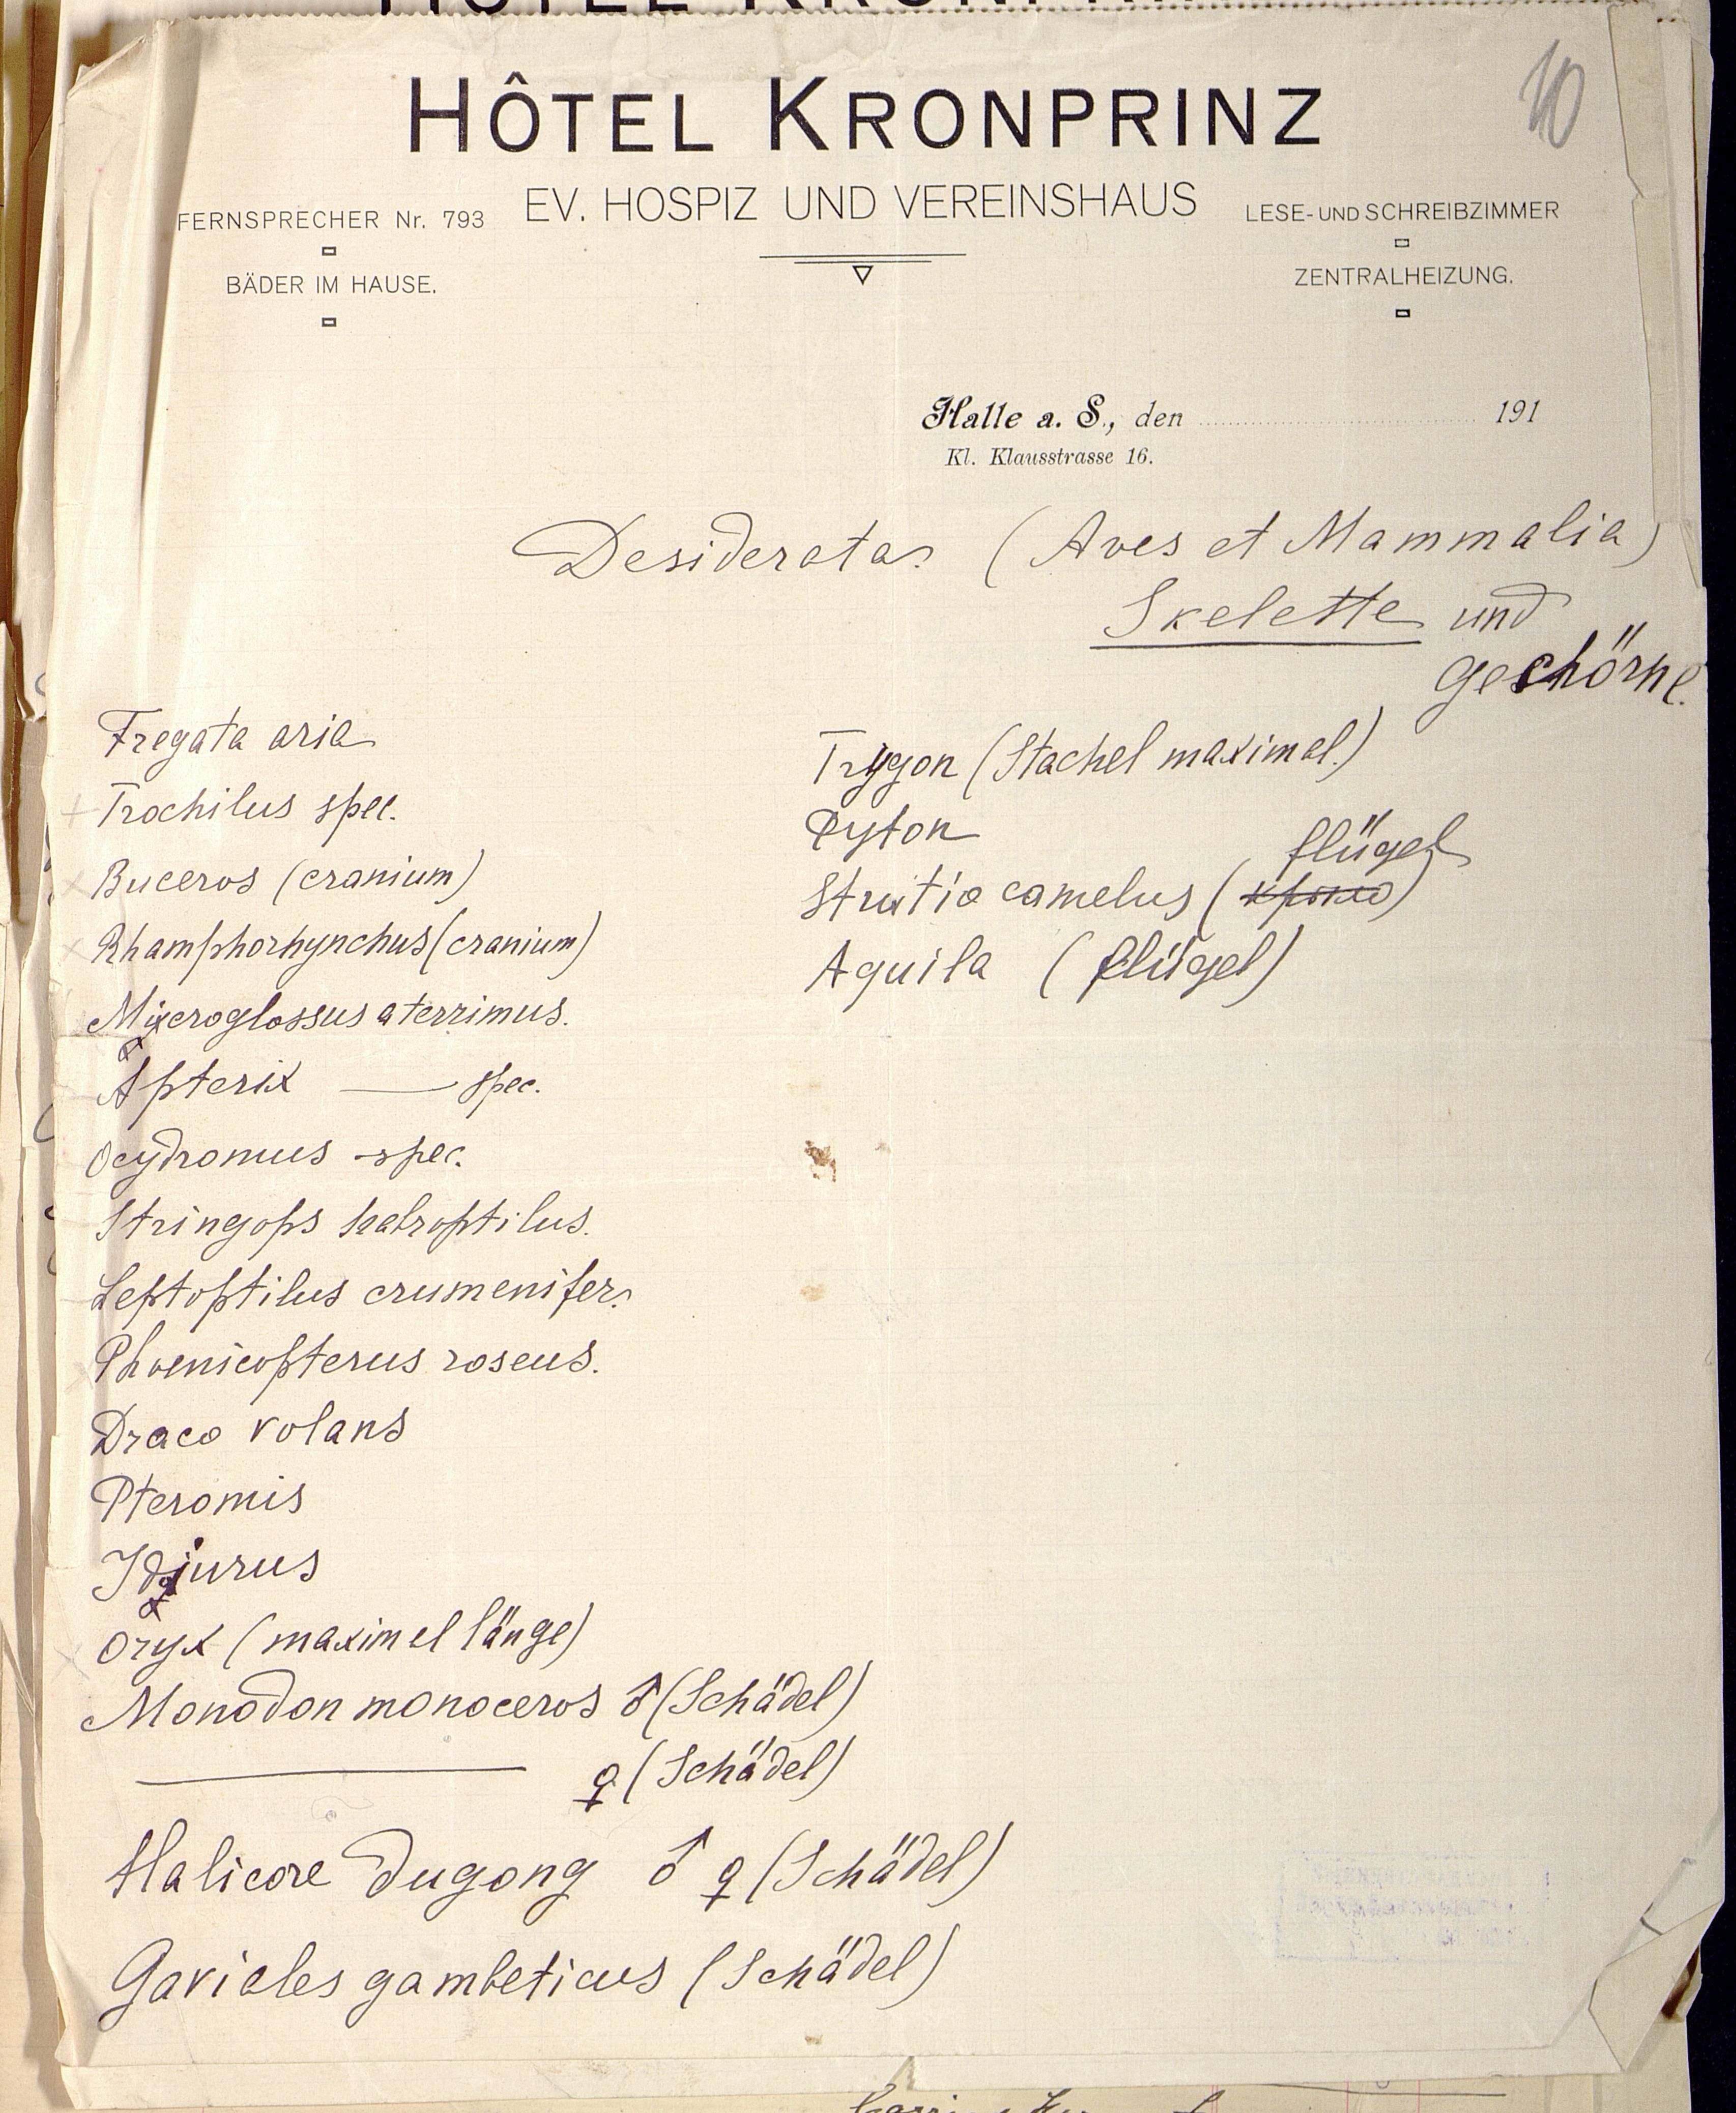 HÔTEL KRONPRINZ
40
EV. HOSPIZ UND VEREINSHAUS
FERNSPRECHER Nr. 793
BÄDER IM HAUSE.
LESE- UND SCHREIBZIMMER
ZENTRALHEIZUNG.
Halle a. S., den 191
Kl. Klausstrasse 16.
Desiderata (Aves et Mammalia)
Skelette und
Gehörne.
Fregata aria
Trochilus spec.
Buceros (cranium)
Rhamphorhynchus (cranium)
Microglossus aterrimus.
Apterix — spec.
Ocydromus spec.
Stringops habroptilus.
Leptoptilus crumenifer.
Phoenicopterus roseus.
Draco volans
Pteromis
Idiurus
Oryx (maximel länge)
Monodon monoceros ♂ (Schädel)
— ♀ (Schädel)
Halicore dugong ♂ ♀ (Schädel)
Gaviales gambeticus (Schädel)
Trygon (Stachel maximal.)
Pyton
flügel
Strutio camelus ( )
Aquila (flügel)